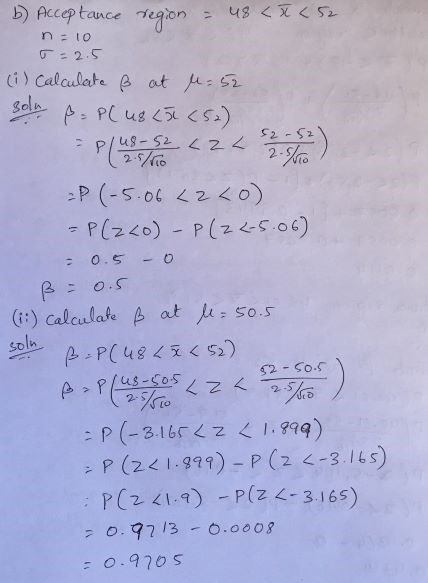 b) Acceptance region = 48 < x̄ < 52
n = 10
σ = 2.5
(i) Calculate β at μ = 52
Soln β = P(48 < x̄ < 52)
= P((48-52)/(2.5/√10) < z < (52-52)/(2.5/√10))
= P(-5.06 < z < 0)
= P(z<0) - P(z<-5.06)
= 0.5 - 0
β = 0.5
(ii) Calculate β at μ = 50.5
Soln β = P(48 < x̄ < 52)
β = P((48-50.5)/(2.5/√10) < z < (52-50.5)/(2.5/√10))
= P(-3.165 < z < 1.899)
= P(z<1.899) - P(z<-3.165)
: P(z<1.9) - P(z<-3.165)
= 0.9713 - 0.0008
= 0.9705